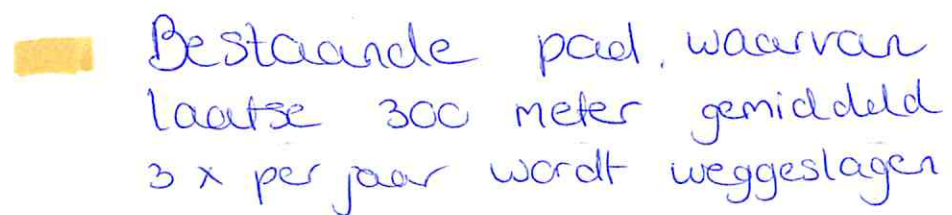 Bestaande pad, waarvan
laatse 300 meter gemiddeld
3 x per jaar wordt weggeslagen